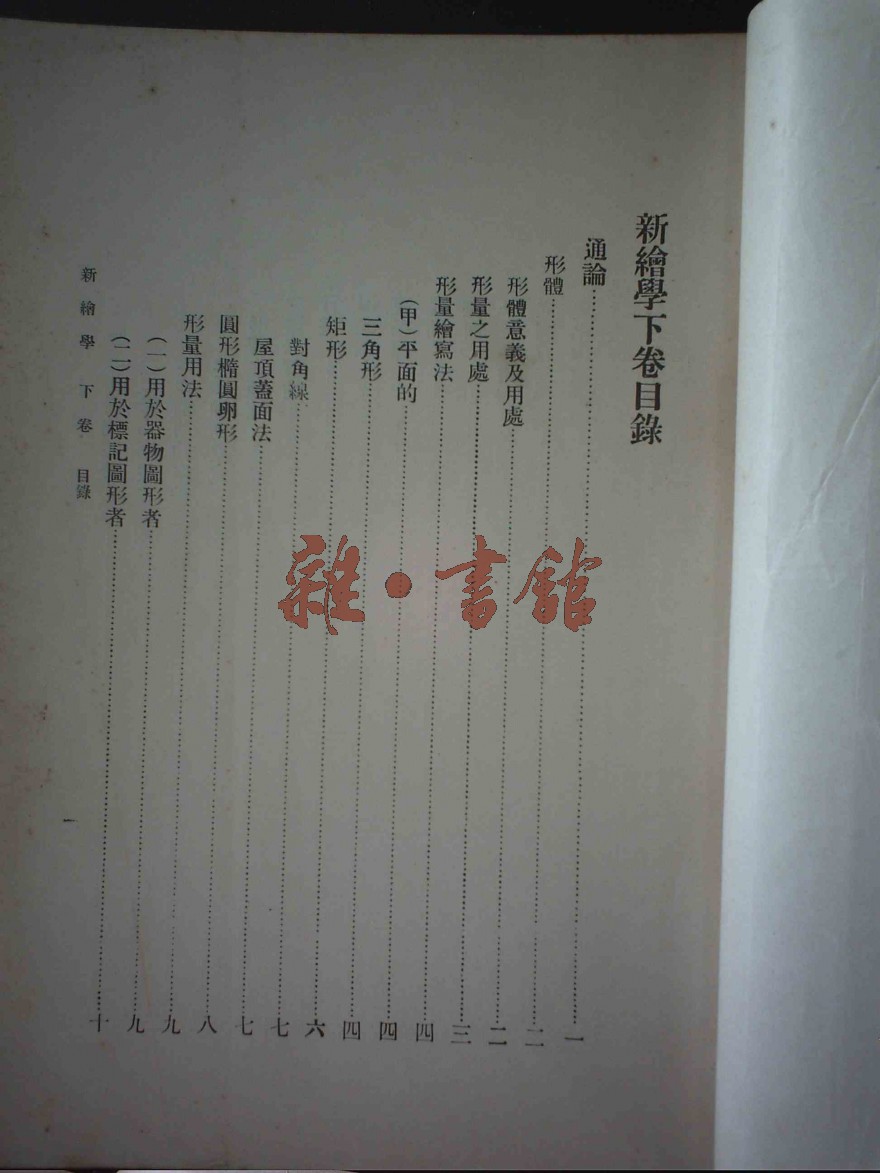 新繪學下卷目錄
通論……一
形體……二
形體意義及用處……二
形量之用處……三
形量繪寫法……四
(甲)平面的……四
三角形……四
矩形……六
對角線……七
屋頂蓋面法……七
圓形橢圓卵形……八
形量用法……九
(一)用於器物圖形者……九
(二)用於標記圖形者……十
新繪學 下卷 目錄
一
雜·書館